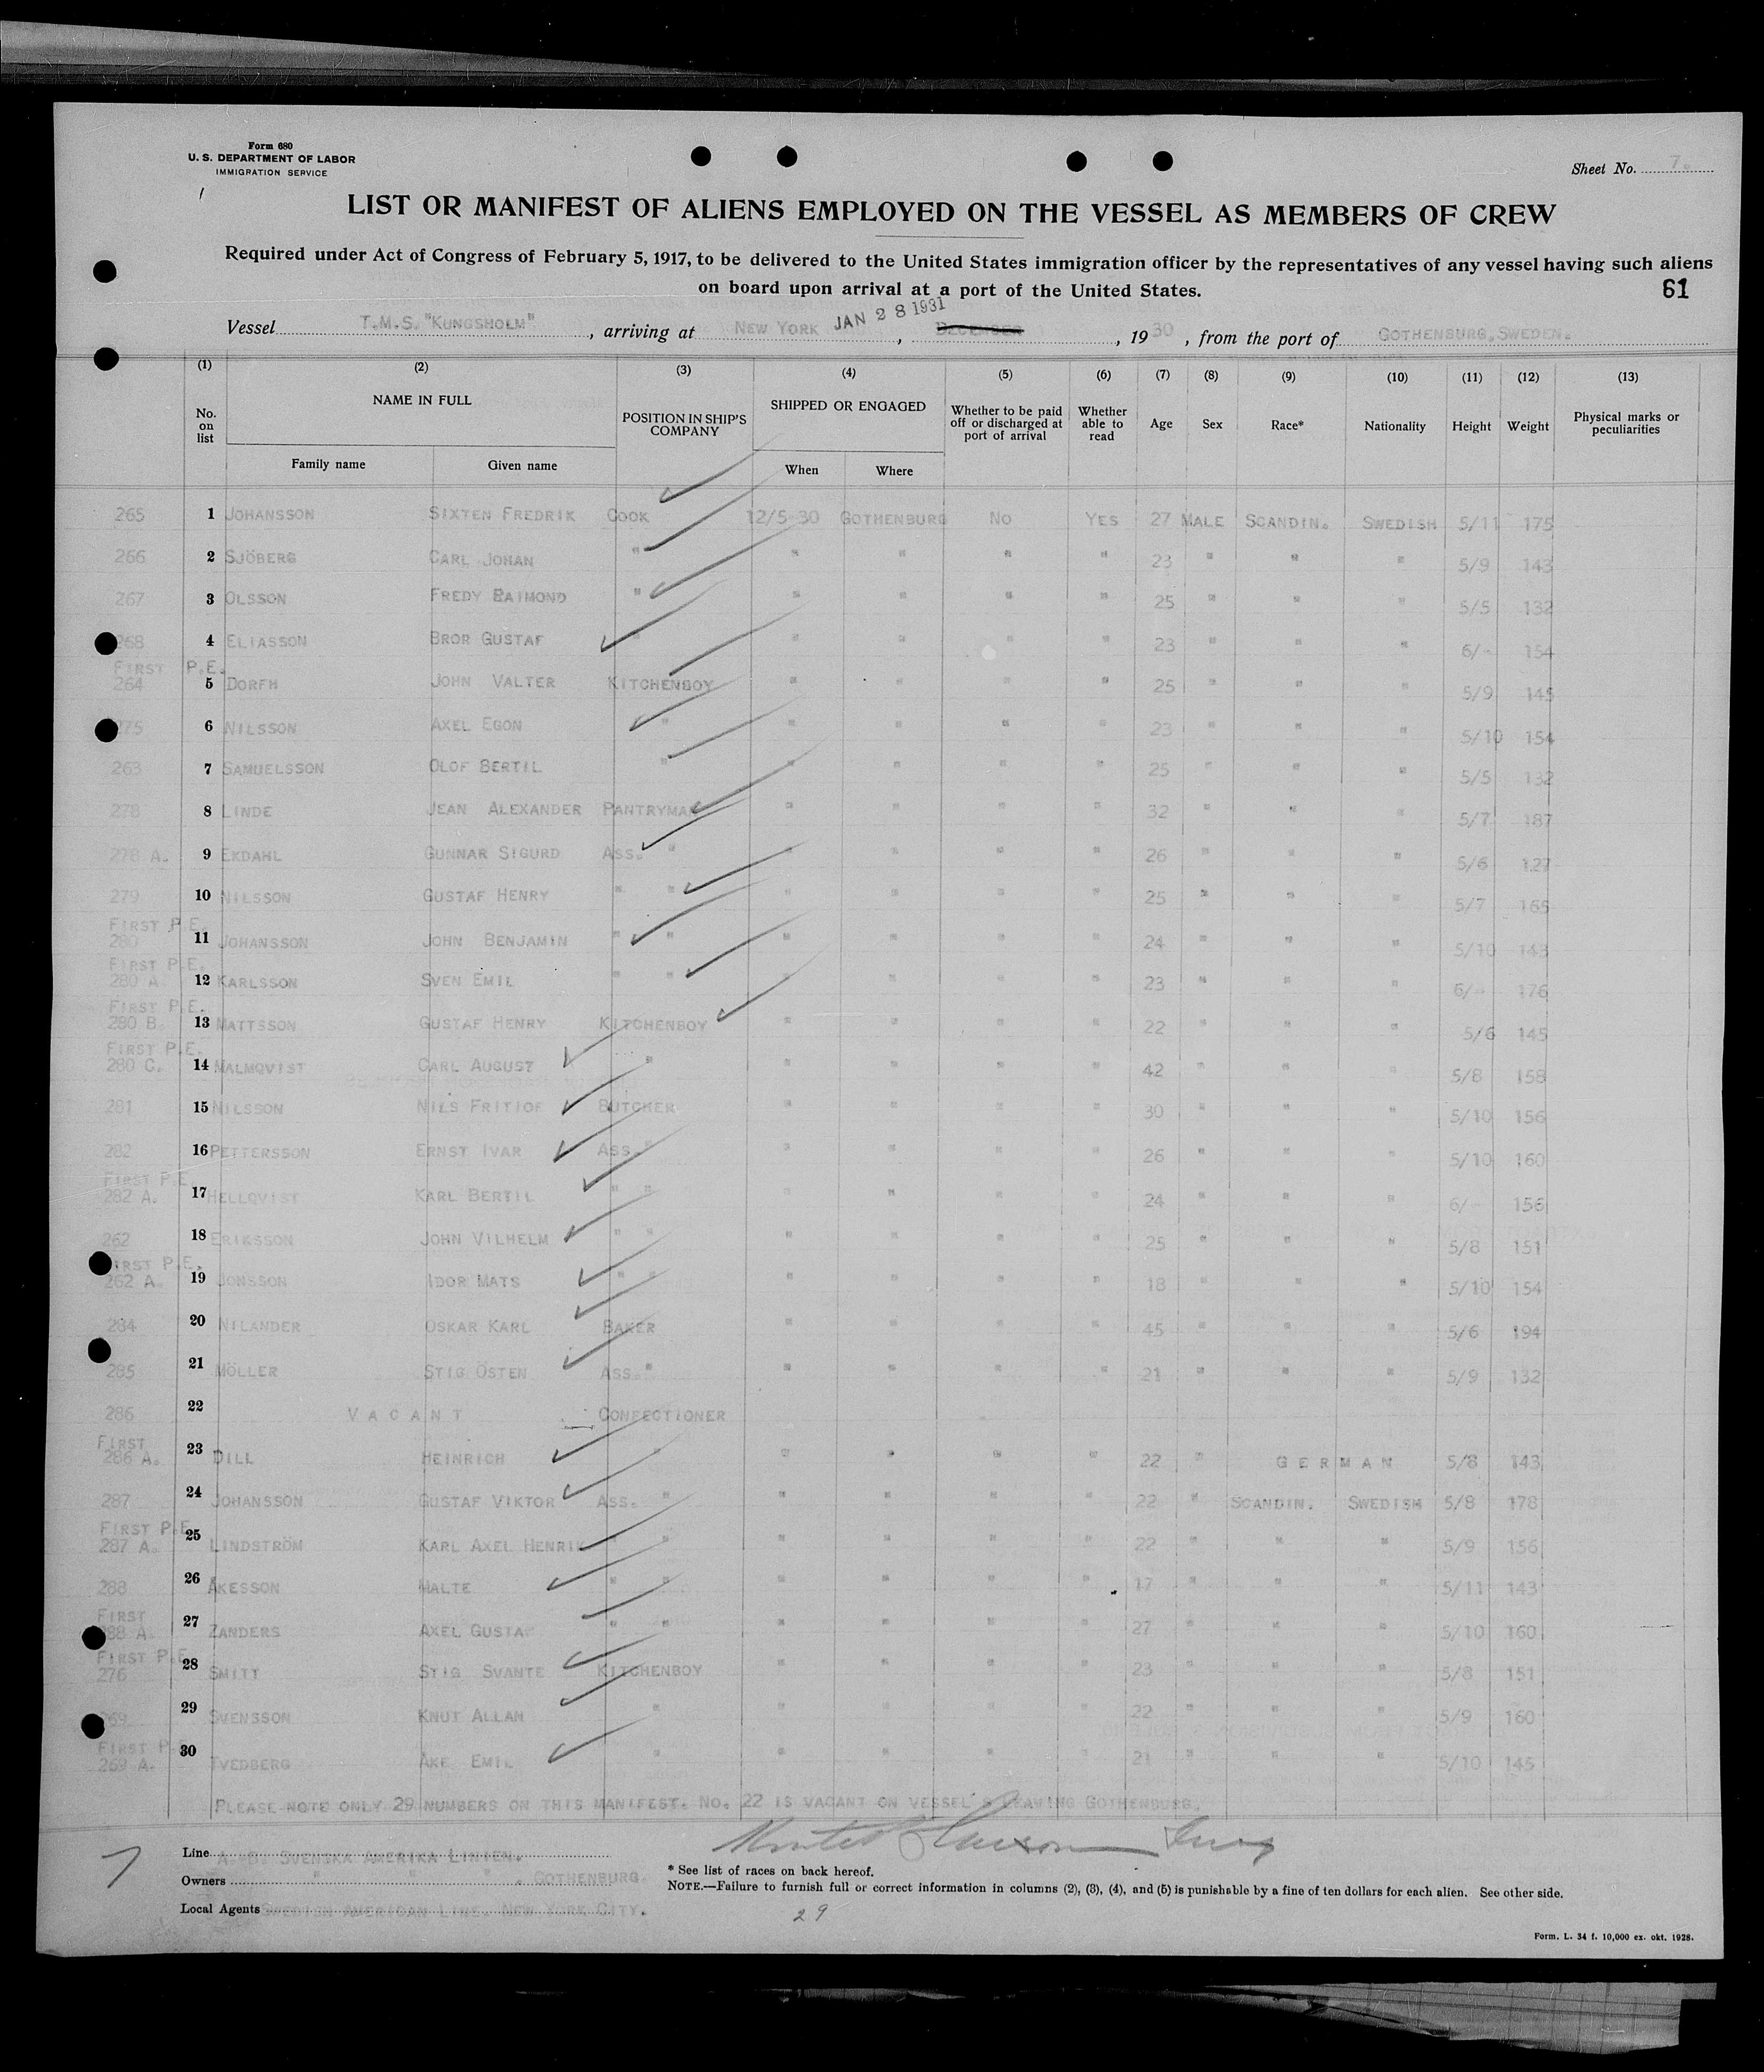 Form 680
U. S. DEPARTMENT OF LABOR
IMMIGRATION SERVICE
Sheet No. 7.
LIST OR MANIFEST OF ALIENS EMPLOYED ON THE VESSEL AS MEMBERS OF CREW
Required under Act of Congress of February 5, 1917, to be delivered to the United States immigration officer by the representatives of any vessel having such aliens
on board upon arrival at a port of the United States.
61
Vessel T.M.S. "KUNGSHOLM", arriving at NEW YORK JAN 28 1931, DECEMBER, 1930, from the port of GOTHENBURG, SWEDEN.
(1) (2) (3) (4) (5) (6) (7) (8) (9) (10) (11) (12) (13)
No. on list NAME IN FULL Family name Given name POSITION IN SHIP'S COMPANY SHIPPED OR ENGAGED When Where Whether to be paid off or discharged at port of arrival Whether able to read Age Sex Race* Nationality Height Weight Physical marks or peculiarities
265 1 JOHANSSON SIXTEN FREDRIK COOK 12/5-30 GOTHENBURG NO YES 27 MALE SCANDIN. SWEDISH 5/11 175
266 2 SJÖBERG CARL JOHAN " " " " " 23 " " " 5/9 143
267 3 OLSSON FREDY RAIMOND " " " " " 25 " " " 5/5 132
268 4 ELIASSON BROR GUSTAF " " " " " 23 " " " 6/- 154
FIRST P.E.
264 5 DORFH JOHN VALTER KITCHENBOY " " " " 25 " " " 5/9 145
275 6 NILSSON AXEL EGON " " " " " 23 " " " 5/10 154
263 7 SAMUELSSON OLOF BERTIL " " " " " 25 " " " 5/5 132
278 8 LINDE JEAN ALEXANDER PANTRYMAN " " " " 32 " " " 5/7 187
278 A. 9 EKDAHL GUNNAR SIGURD ASS. " " " " " 26 " " " 5/6 127
279 10 NILSSON GUSTAF HENRY " " " " " " 25 " " " 5/7 165
FIRST P.E.
280 11 JOHANSSON JOHN BENJAMIN " " " " " " 24 " " " 5/10 143
FIRST P.E.
280 A 12 KARLSSON SVEN EMIL " " " " " " 23 " " " 6/- 176
FIRST P.E.
280 B. 13 MATTSSON GUSTAF HENRY KITCHENBOY " " " " 22 " " " 5/6 145
FIRST P.E.
280 C. 14 MALMQVIST CARL AUGUST " " " " " 42 " " " 5/8 158
281 15 NILSSON NILS FRITIOF BUTCHER " " " " 30 " " " 5/10 156
282 16 PETTERSSON ERNST IVAR ASS. " " " " " 26 " " " 5/10 160
FIRST P.E.
282 A. 17 HELLQVIST KARL BERTIL " " " " " " 24 " " " 6/- 156
262 18 ERIKSSON JOHN VILHELM " " " " " " 25 " " " 5/8 151
FIRST P.E.
262 A. 19 JONSSON IDOR MATS " " " " " " 18 " " " 5/10 154
284 20 NILANDER OSKAR KARL BAKER " " " " 45 " " " 5/6 194
285 21 MÖLLER STIG ÖSTEN ASS. " " " " " 21 " " " 5/9 132
286 22 VACANT CONFECTIONER
FIRST
286 A. 23 DILL HEINRICH " " " " " 22 " GERMAN 5/8 143
287 24 JOHANSSON GUSTAF VIKTOR ASS. " " " " " 22 " SCANDIN. SWEDISH 5/8 178
FIRST P.E.
287 A. 25 LINDSTRÖM KARL AXEL HENRIK " " " " " 22 " " " 5/9 156
288 26 ÅKESSON MALTE " " " " " " 17 " " " 5/11 143
FIRST
288 A. 27 ZANDERS AXEL GUSTAF " " " " " " 27 " " " 5/10 160
FIRST P.E.
276 28 SMITT STIG SVANTE KITCHENBOY " " " " 23 " " " 5/8 151
269 29 SVENSSON KNUT ALLAN " " " " " 22 " " " 5/9 160
FIRST P.E.
269 A. 30 TVEDBERG ÅKE EMIL " " " " " 21 " " " 5/10 145
PLEASE NOTE ONLY 29 NUMBERS ON THIS MANIFEST. NO. 22 IS VACANT ON VESSEL'S LEAVING GOTHENBURG.
7
Line A.-B. SVENSKA AMERIKA LINIEN.
* See list of races on back hereof.
Owners " " " , GOTHENBURG.
NOTE.—Failure to furnish full or correct information in columns (2), (3), (4), and (5) is punishable by a fine of ten dollars for each alien. See other side.
Local Agents SWEDISH AMERICAN LINE. NEW YORK CITY.
29
Form. L. 34 f. 10,000 ex. okt. 1928.